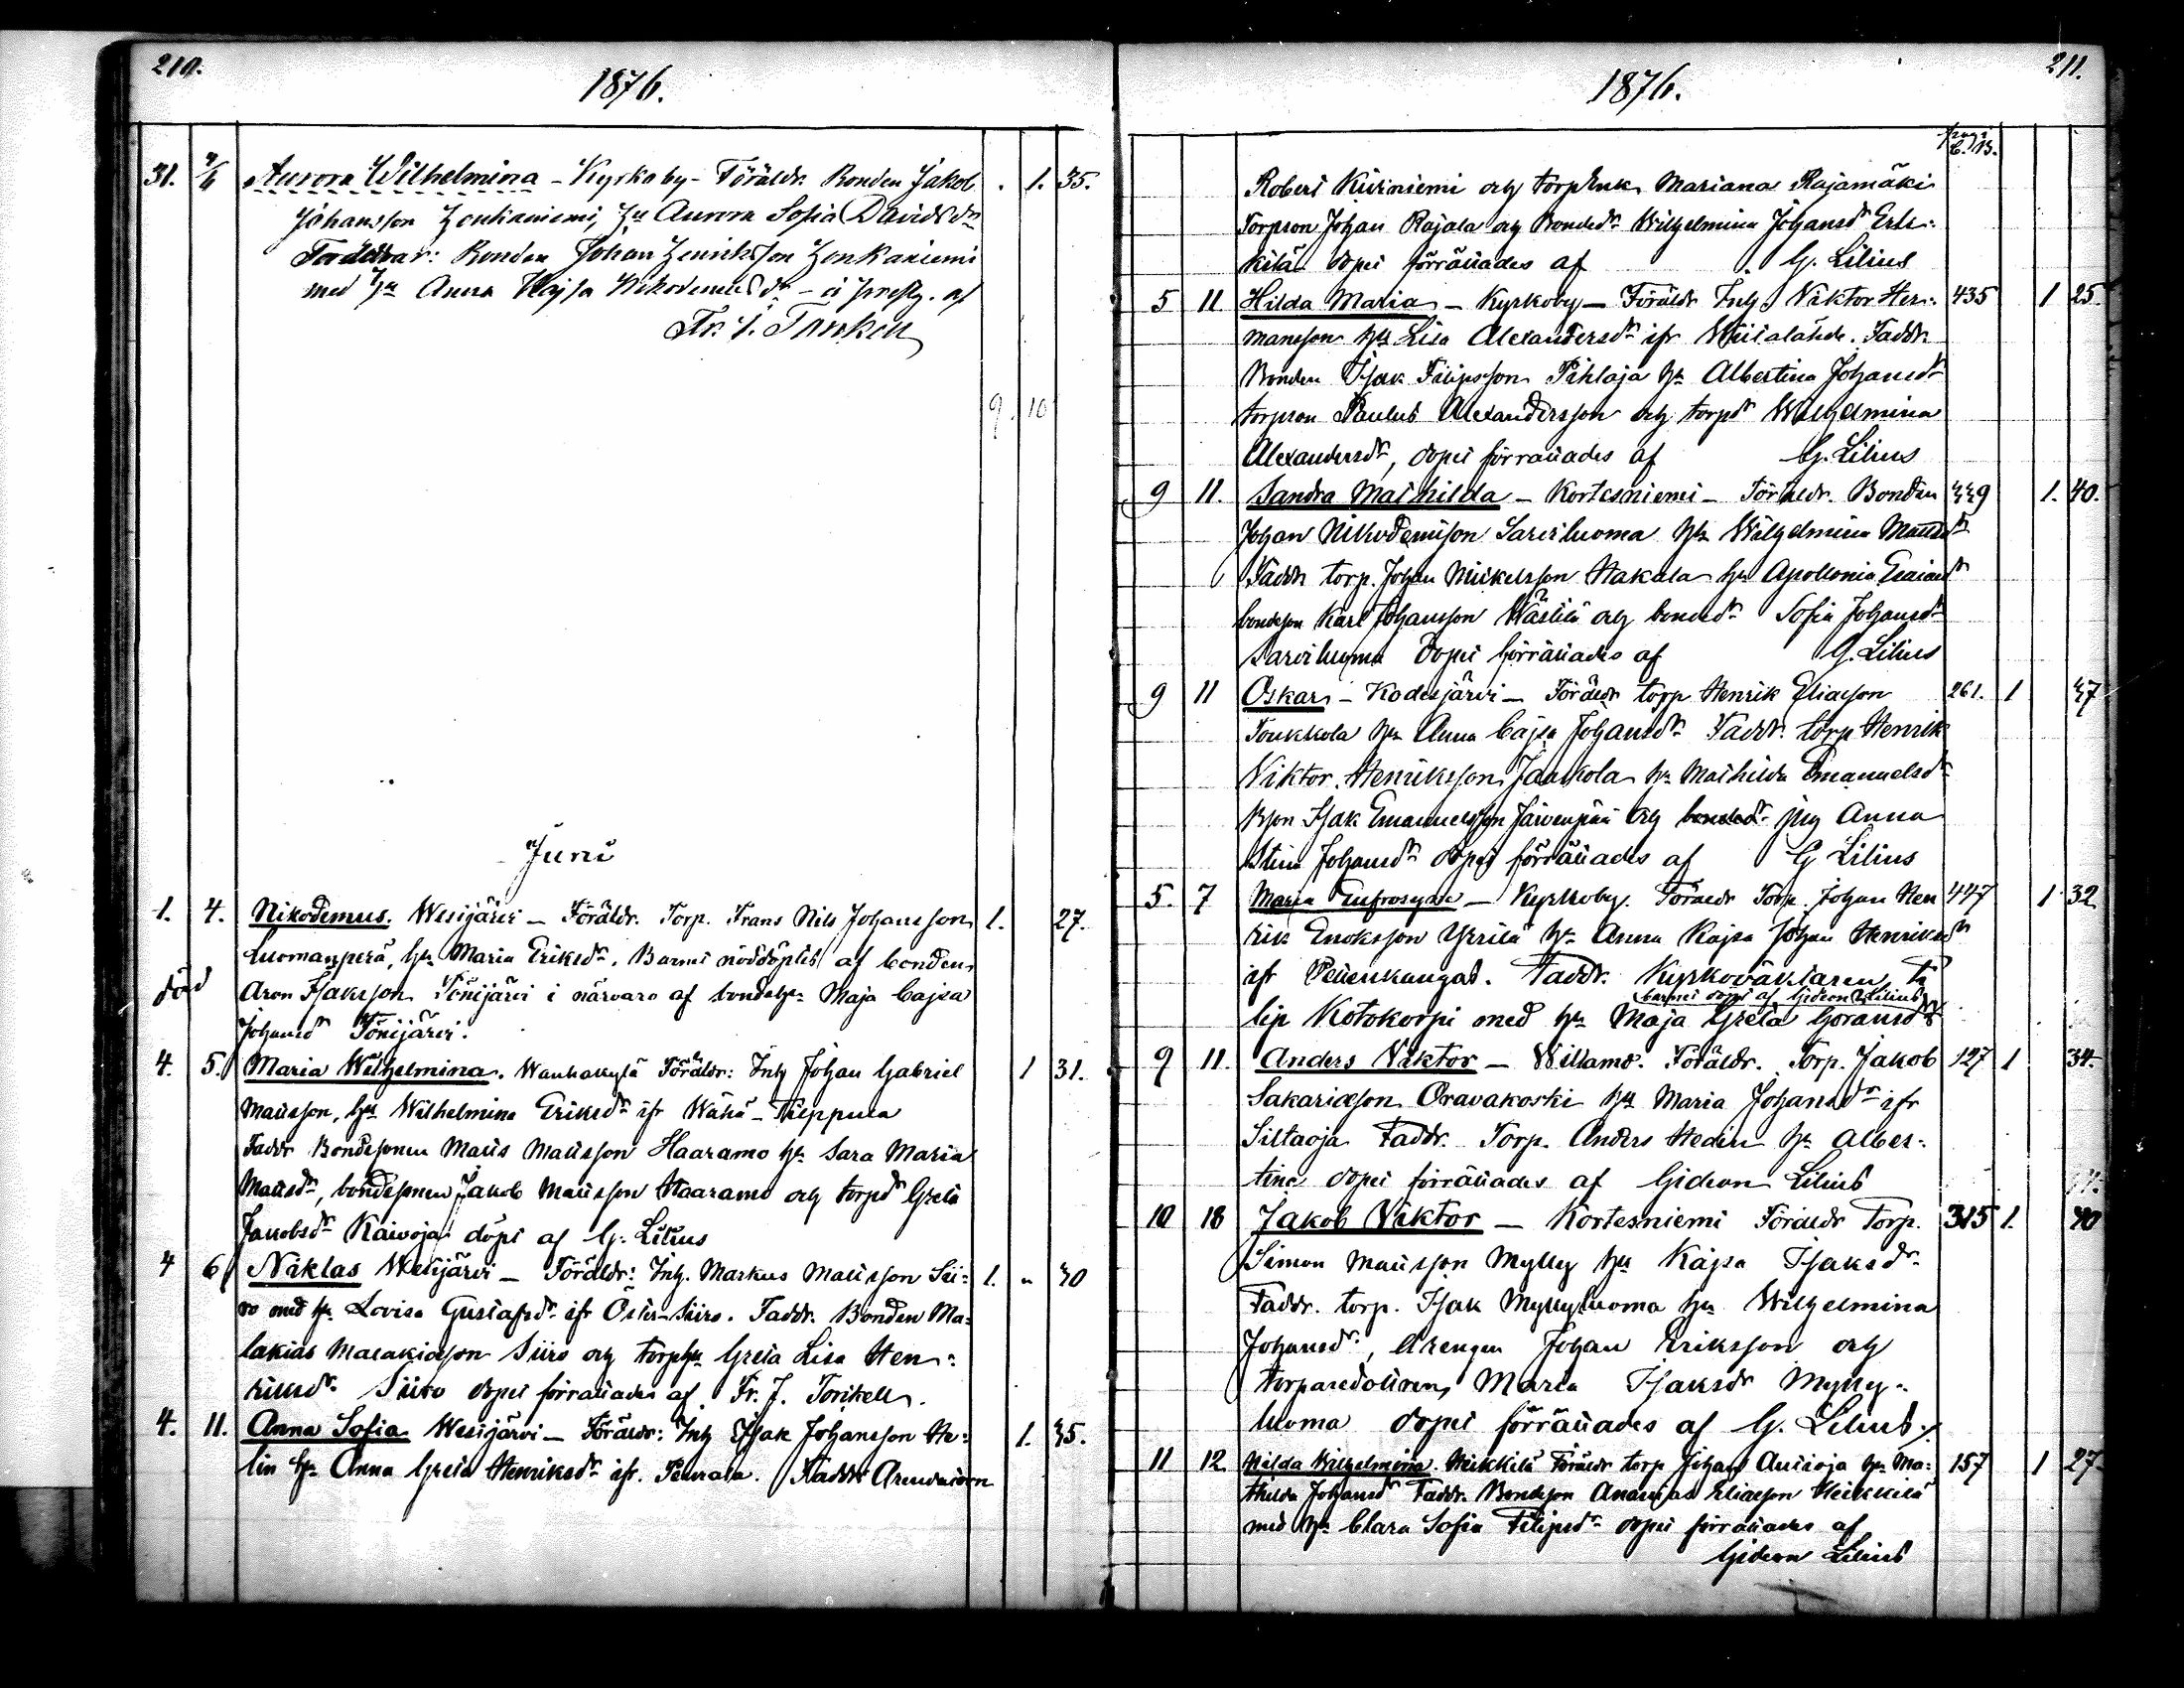 210.
1876.
31. 4/6 Aurora Wilhelmina - Kyrkoby - Föräldr. Bonden Jakob . 1. 35.
Johansson Honkaniemi, Hu Aurora Sofia Davidsdr
Faddrar: Bonden Johan Henriksson Honkaniemi
med Hu Anna Kajsa Nikodemusdr - af
Fr. J.
9. 10
Juni
1. 4. Nikodemus. Wesijärvi - Föräldr. Torp. Frans Nils Johansson 1. 27.
Luomanperä, hu Maria Eriksdr. Barnet nöddöptes af bonden
död Aron Isaksson Tönijärvi i närvaro af bondehu Maja Cajsa
Johansdr Tönijärvi.
4. 5. Maria Wilhelmina. Wanhakylä Föräldr: Inh Johan Gabriel 1 31.
Mattsson, hu Wilhelmina Eriksdr ifr Wähä-
Faddr Bondesonen Matts Mattsson Haaramo hu Sara Maria
Mattsdr, bondesonen Jakob Mattsson Haaramo och torpdr Greta
Jakobsdr Kaivoja döpt af G. Lilius
4 6 Niklas Wesijärvi - Föräldr: Inh. Markus Mattsson Sii- 1. " 40
ro med hu Lovisa Gustafsdr ifr Öster-Siiro. Faddr. Bonden Ma-
lakias Malakiasson Siiro och torphu Greta Lisa Hen-
riksdr Siiro dopet förrättades af Fr. J.
4. 11. Anna Sofia Wesijärvi - Föräldr: Inh Isak Johansson He- 1. 35.
lin hu Anna Greta Henriksdr ifr. Penrala. Faddr
211.
1876.
Robert Kiviniemi och torpenk. Mariana Rajamäki
Torpson Johan Rajala och Bondedr Wilhelmina Johansd Erk-
kilä dopet förrättades af G. Lilius
5 11 Hilda Maria - Kyrkoby - Föräldr Inh. Viktor Her- 435 1 25
mansson hu Lisa Alexandersdr ifr Faddr.
Bonden Isak Filipsson Pihlaja hu Albertina Johansdr
torpson Paulus Alexandersson och torpdr Wilhelmina
Alexandersdr, dopet förrättades af G. Lilius
9 11. Sandra Mathilda - Kortesniemi - Föräldr. Bonden 449 1. 40.
Johan Nikodemusson Sarviluoma hu Wilhelmina Mattsdr
Faddr torp. Johan Mickelsson Hakala hu Apollonia Esaiasdr
bondeson Karl Johansson Wästilä och bondedr Sofia Johansdr
Sarviluoma dopet förrättades af G. Lilius
9 11 Oskar - Kodesjärvi - Föräldr torp Henrik Eliasson 261. 1 47
Toukkola hu Anna Cajsa Johansdr Faddr. torp Henrik
Viktor Henriksson Jaaskola hu Mathilda Emanuelsdr
Bson Isak Emanuelsson Järvenpää och bondedr pig Anna
Stina Johansdr dopet förrättades af G Lilius
5. 7 Maria Eufrosyne - Kyrkoby. Föräldr Torp. Johan Hen 447 1 32
rik Enoksson Yrrilä hu Anna Kajsa Johan Henriksdr
ifr Peuenkangas. Faddr. Kyrkoväktaren Fi
barnet döpt af Gideon Lilius
lip Kotokorpi med hu Maja Greta Göransdr
9 11. Anders Viktor - Willamo. Föräldr. Torp. Jakob 127 1 34.
Sakariasson Oravakoski hu Maria Johansdr ifr
Siltaoja Faddr. Torp. Anders Hedin hu Alber-
tina dopet förrättades af Gideon Lilius
10 18 Jakob Viktor - Kortesniemi Föräldr Torp. 315 1. 40
Simon Mattsson Mylly hu Kajsa Isaksdr
Faddr. torp. Isak Myllyluoma hu Wilhelmina
Johansdr, drengen Johan Eriksson och
torparedottren, Maria Isaksdr Mylly-
luoma dopet förrättades af G. Lilius
11 12 Hilda Wilhelmina. Heikkilä Föräldr torp Johan Autioja hu Ma- 157 1 27
thilda Johansdr Faddr. Bondeson Ananias Eliasson Heikkilä
med hu Clara Sofia Filipsdr dopet förrättades af
Gideon Lilius